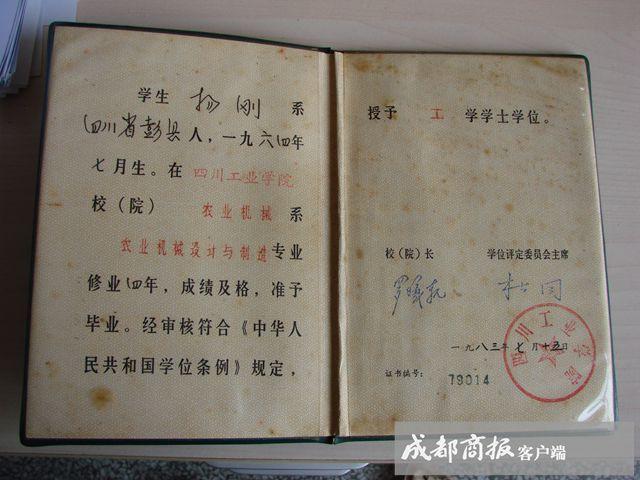 学生 杨刚 系
四川省彭县人，一九六四年
七月生。在 四川工业学院
校（院） 农业机械 系
农业机械设计与制造 专业
修业四年，成绩及格，准予
毕业。经审核符合《中华人
民共和国学位条例》规定，
授予 工 学学士学位。
校（院）长 学位评定委员会主席
一九八三年七月十五日
证书编号： 79014
四川工业学院
成都商报客户端